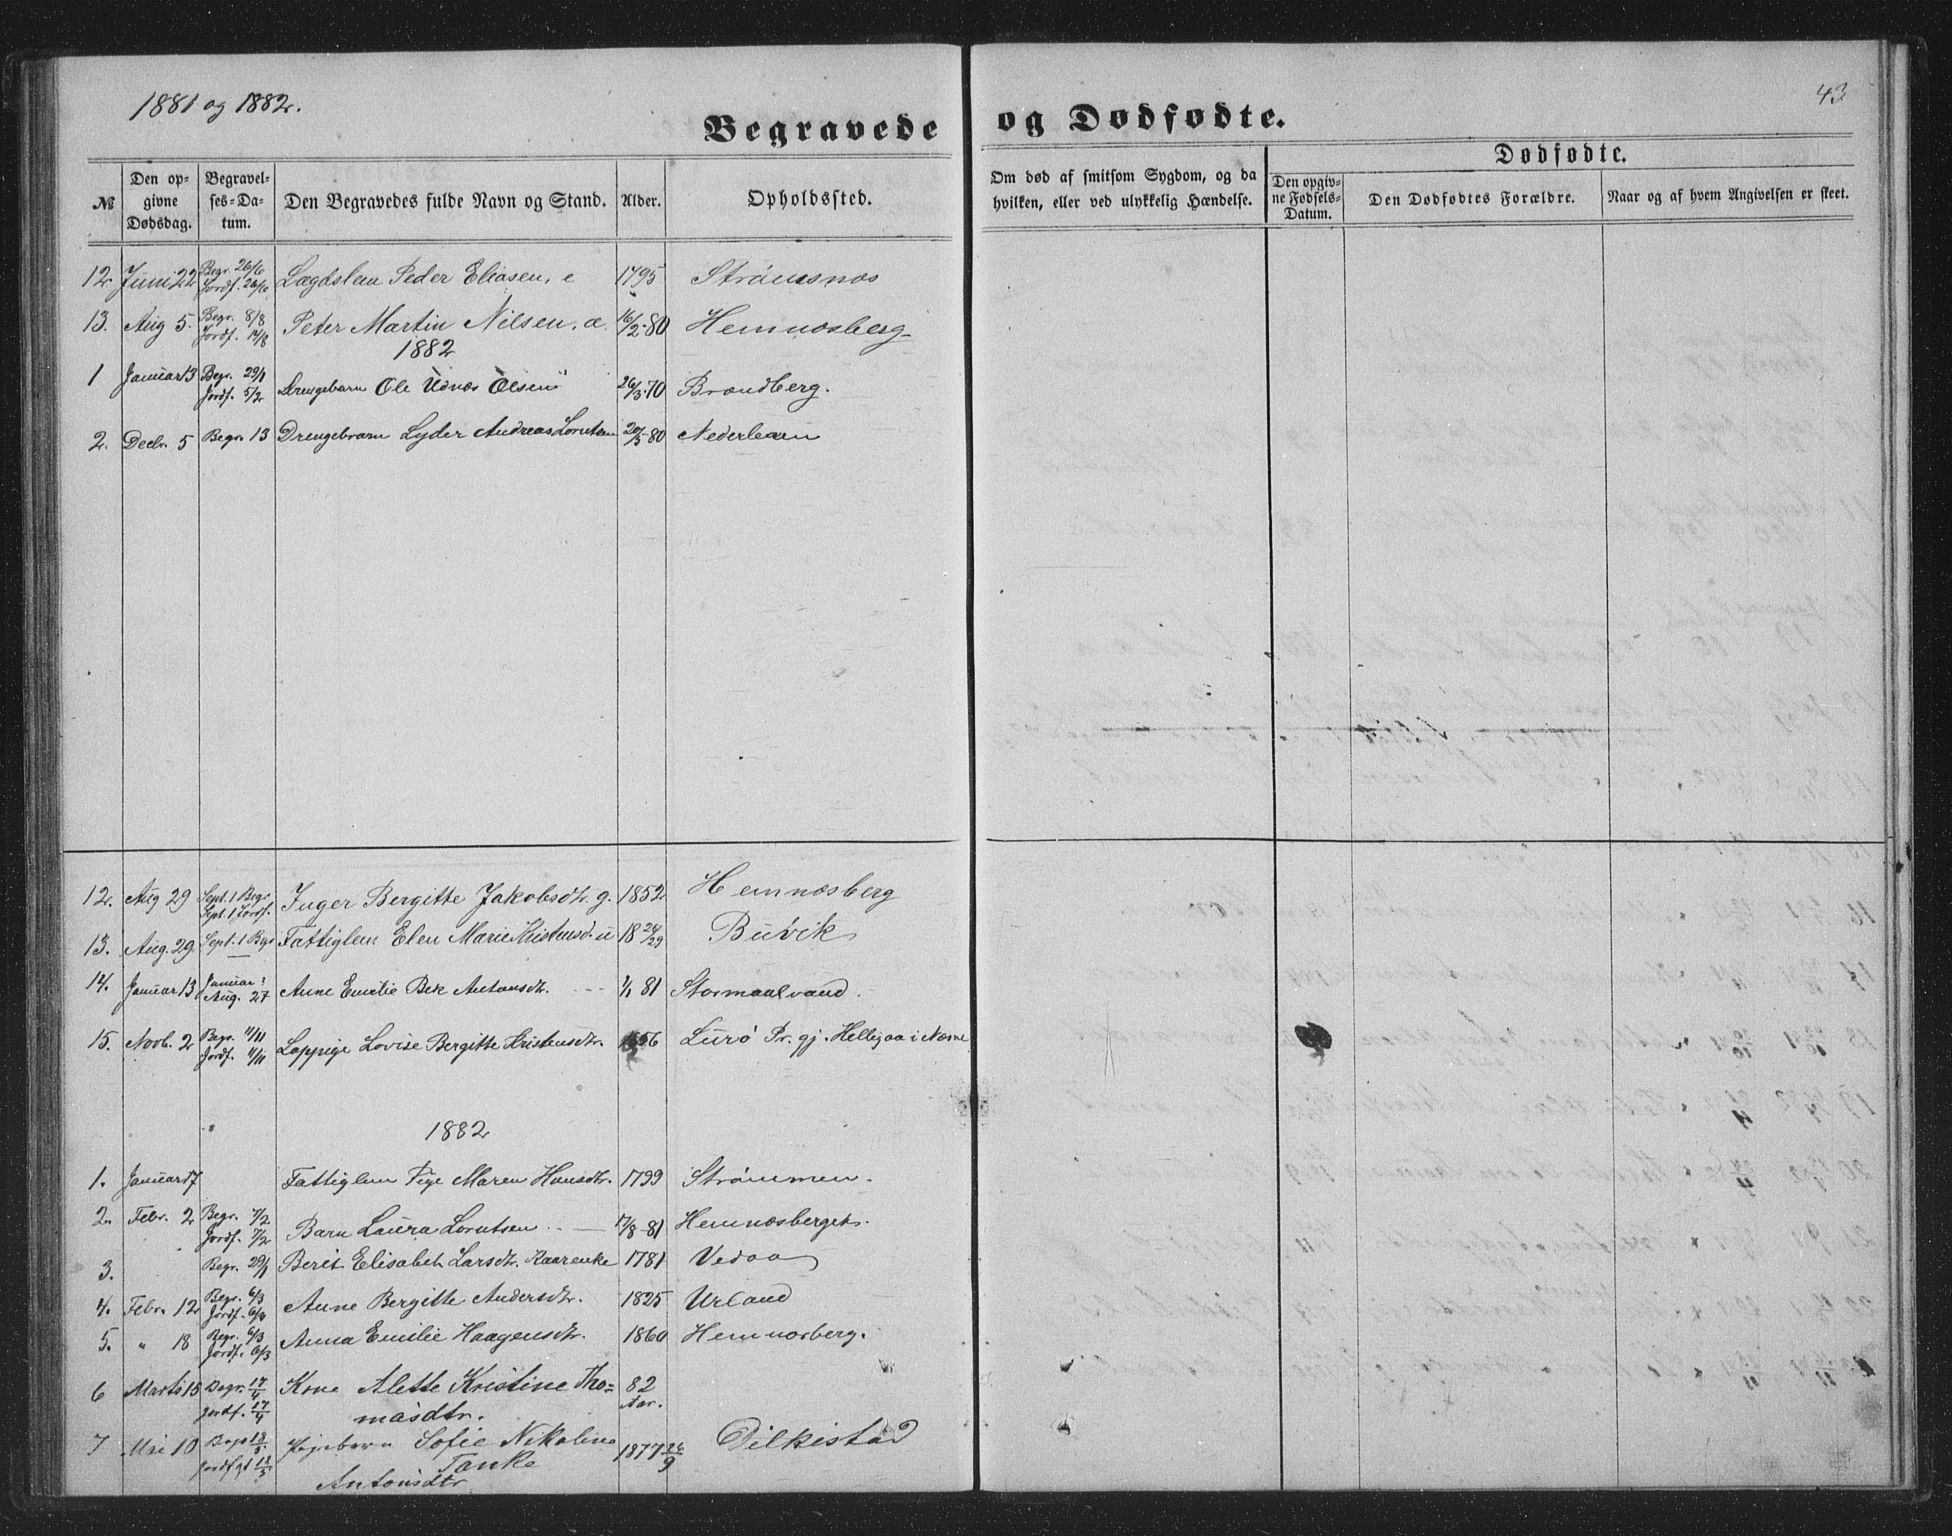 1881 og 1882.
43
Begravede og Dødfødte.
№
Den opgivne Dødsdag.
Begravelses-Datum.
Den Begravedes fulde Navn og Stand.
Alder.
Opholdssted.
Om død af smitsom Sygdom, og da hvilken, eller ved ulykkelig Hændelse.
Dødfødte.
Den opgivne Fødsels-Datum.
Den Dødfødtes Forældre.
Naar og af hvem Angivelsen er skeet.
12. Juni 22 Begr. 26/6 Jordf. 26/6 Lægdslem Peder Eliasen, e 1795 Strømsnæs
13. Aug 5. Begr. 8/8 Jordf. 14/8 Peter Martin Nilsen. a. 16/2-80 Hemnæsberg
1882
1 Januar 13 Begr. 29/1 Jordf. 5/2 Drengebarn Ole Udnæs Olsen 26/3-70 Brændberg.
2. Decbr. 5 Begr. 13 Drengebarn Lyder Andreas Lorntsen 20/5-80 Nederleiren
12. Aug 29 Sept. 1 Begr. Sept. 1 Jordf. Inger Bergitte Jakobsdtr. g. 1852 Hemnæsberg
13. Aug. 29. Sept. 1 Begr Fattiglem Elen Marie Kristensd. u 18 24/29 Buvik
14. Januar 13 Januar ! Aug. 27 Anne Emilie Bek Antonsdtr. 1/1 81 Stormaalvand.
15. Novb. 2 Begr. 11/11 Jordf. 11/11 Lappige Lovise Bergitte Kristensdtr. 1856 Lurø Pr. gj. Hellegaa i Næsne
1882
1. Januar 17 Fattiglem Pige Maren Hansdtr. 1799 Strømmen.
2. Febr. 2 Begr. 7/2 Jordf. 7/2 Barn Laura Lorntsen 17/8-81 Hemnæsberget.
3. Begr. 29/1 Berit Elisabet Larsdtr. Kaarenke 1781 Vedaa
4. Febr. 12 Begr. 6/3 Jordf. 6/3 Anne Bergitte Andersdtr. 1825 Urland
5. " 18 Begr. 6/3 Jordf. 6/3 Anna Emilie Haagensdtr. 1860 Hemnæsberg.
6 Marts 15 Begr. 17/4 Jordf. 17/4 Kone Alette Kristine Tho=
masdtr. 82 Aar.
7 Mai 10 Begr 18/5 Jordfgt 18/5 Pigebarn Sofie Nikoline
Tanke
Antonsdtr 1877 26/9 Dilkestad